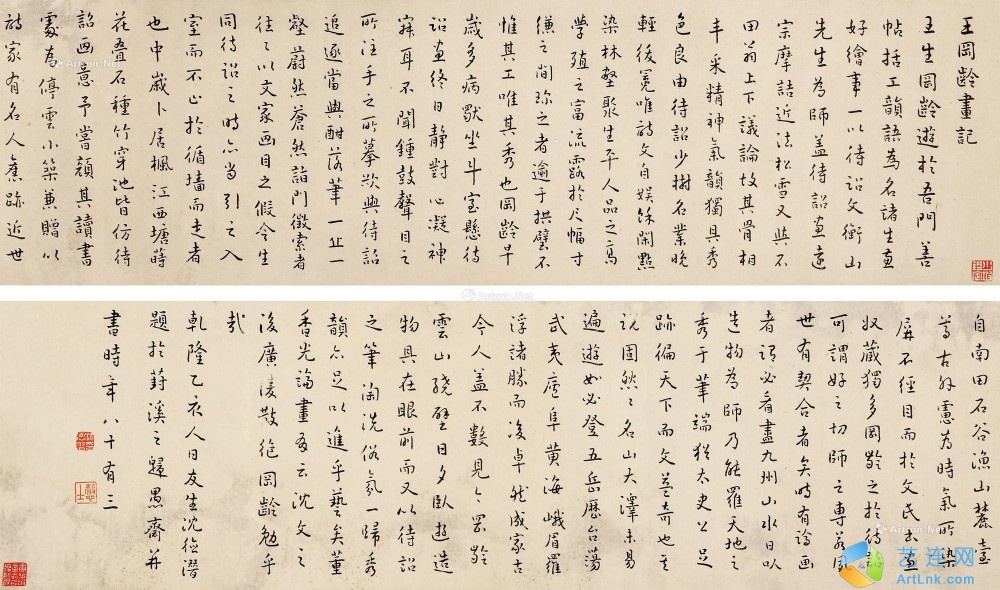 王岡齡畫記
王生岡齡遊於吾門善
帖括工韻語為名諸生畫
好繪事一以待詔文衡山
先生為師蓋待詔畫遠
宗摩詰近法松雪又與石
田翁上下議論故其骨相
丰采精神氣韻獨具秀
色良由待詔少樹名業晚
輕冕唯詩文自娛餘閒點
染林壑聚生平人品之高
學殖之富流露於尺幅寸
縑之間珍之者逾于拱璧不
惟其工唯其秀也岡齡早
歲多病默坐斗室懸待
詔畫終日靜對心凝神
寂耳不聞鍾鼓聲目之
所注手之所摹欻與待詔
追逐當興酣落筆一丘一
壑蔚然蒼然詣門徵索者
往往以文家畫目之假令生
同待詔之時亦當引之入
室而不止於循墻而走者
也中歲卜居楓江西塘蒔
花疊石種竹穿池皆仿待
詔畫意予嘗顏其讀書
處為停雲小築兼贈以
詩家有名人舊跡近世
自南田石谷漁山麓臺
尊古外憲為時氣所染
屏不經目而於文氏書畫
奴藏獨多岡齡之於待詔
可謂好之切師之專若
世有契合者矣時有論畫
者謂必看盡九州山水日以
造物為師乃能羅天地之
秀于筆端猶太史公足
跡徧天下而文益奇也其
說固然然名山大澤未易
遍遊如必登五岳歷台蕩
武夷廬阜黃海峨眉羅
浮諸勝而後卓然成家古
今人蓋不數見今岡齡
雲山繞壁日夕臥遊造
物具在眼前而又以待詔
之筆淘洗俗氛一歸秀
韻亦足以進乎藝矣董
香光論畫多云沈文之
後廣陵散絕岡齡勉乎
哉
乾隆乙亥人日友生沈德潛
題於葑溪之歸愚齋并
書時年八十有三
艺连网
ArtLnk.com
Artron.Net